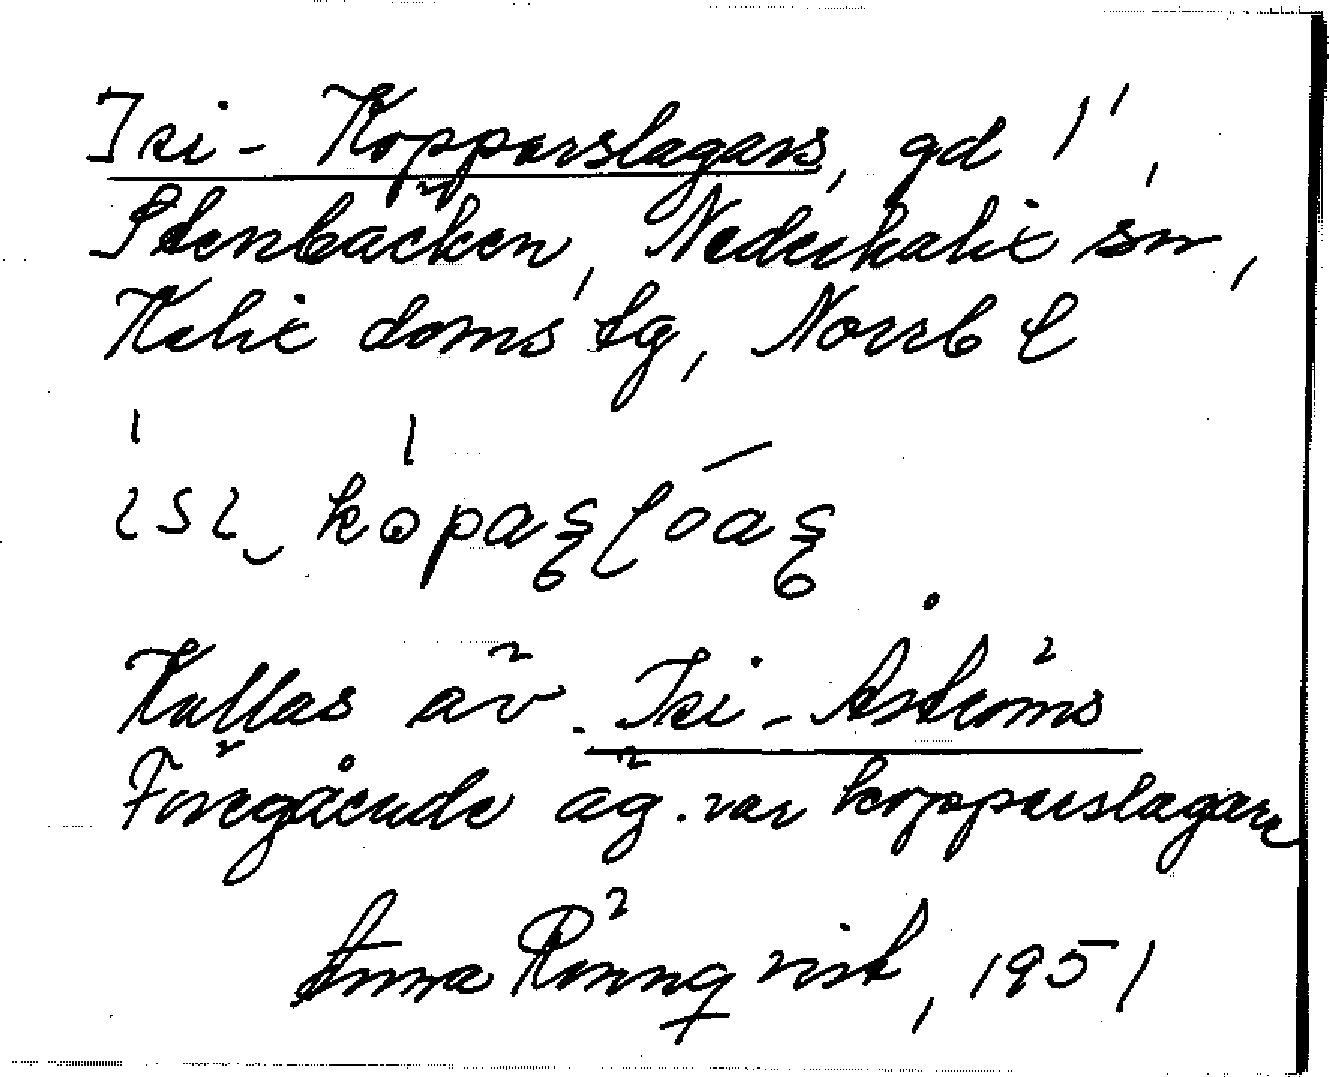 Isi-Kopparslagars, gd 1¹,
Stenbäcken, Nederkalix sn,
Kalix doms tg, Norrb l
ısı‿ kopaʂʅoaʂ
Kallas äv. Isi-Åströms
Föregående äg. var kopparslagare
Anna Rönnqvist, 1951